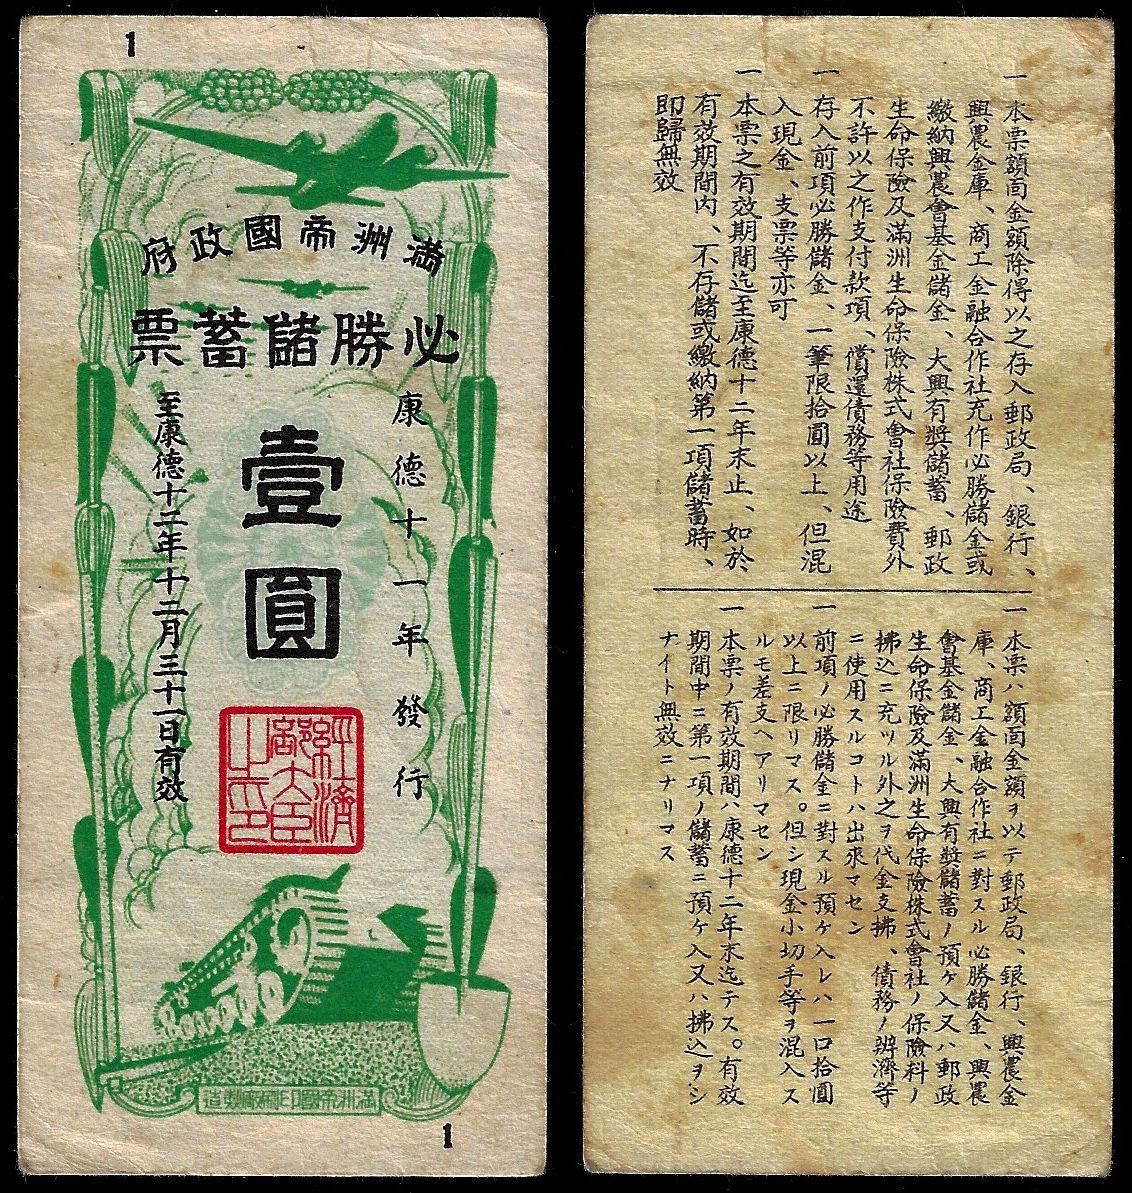 1
滿洲帝國政府
必勝儲蓄票
康德十一年發行
壹圓
至康德十二年十二月三十一日有效
經濟部大臣之印
滿洲帝國印刷廠製造
1
一 本票額面金額除得以之存入郵政局、銀行、
興農金庫、商工金融合作社充作必勝儲金或
繳納興農會基金儲金、大興有奬儲蓄、郵政
生命保險及滿洲生命保險株式會社保險費外
不許以之作支付款項、償還債務等用途
一 存入前項必勝儲金、一筆限拾圓以上、但混
入現金、支票等亦可
一 本票之有效期間迄至康德十二年末止、如於
有效期間內、不存儲或繳納第一項儲蓄時、
即歸無效
一 本票ハ額面金額ヲ以テ郵政局、銀行、興農金
庫、商工金融合作社ニ對スル必勝儲金、興農
會基金儲金、大興有奬儲蓄ノ預ケ入又ハ郵政
生命保險及滿洲生命保險株式會社ノ保險料ノ
拂込ニ充ツル外之ヲ代金支拂、債務ノ辨濟等
ニ使用スルコトハ出來マセン
一 前項ノ必勝儲金ニ對スル預ケ入レハ一口拾圓
以上ニ限リマス。但シ現金小切手等ヲ混入ス
ルモ差支ヘアリマセン
一 本票ノ有效期間ハ康德十二年末迄テス。有效
期間中ニ第一項ノ儲蓄ニ預ケ入又ハ拂込ヲシ
ナイト無效ニナリマス